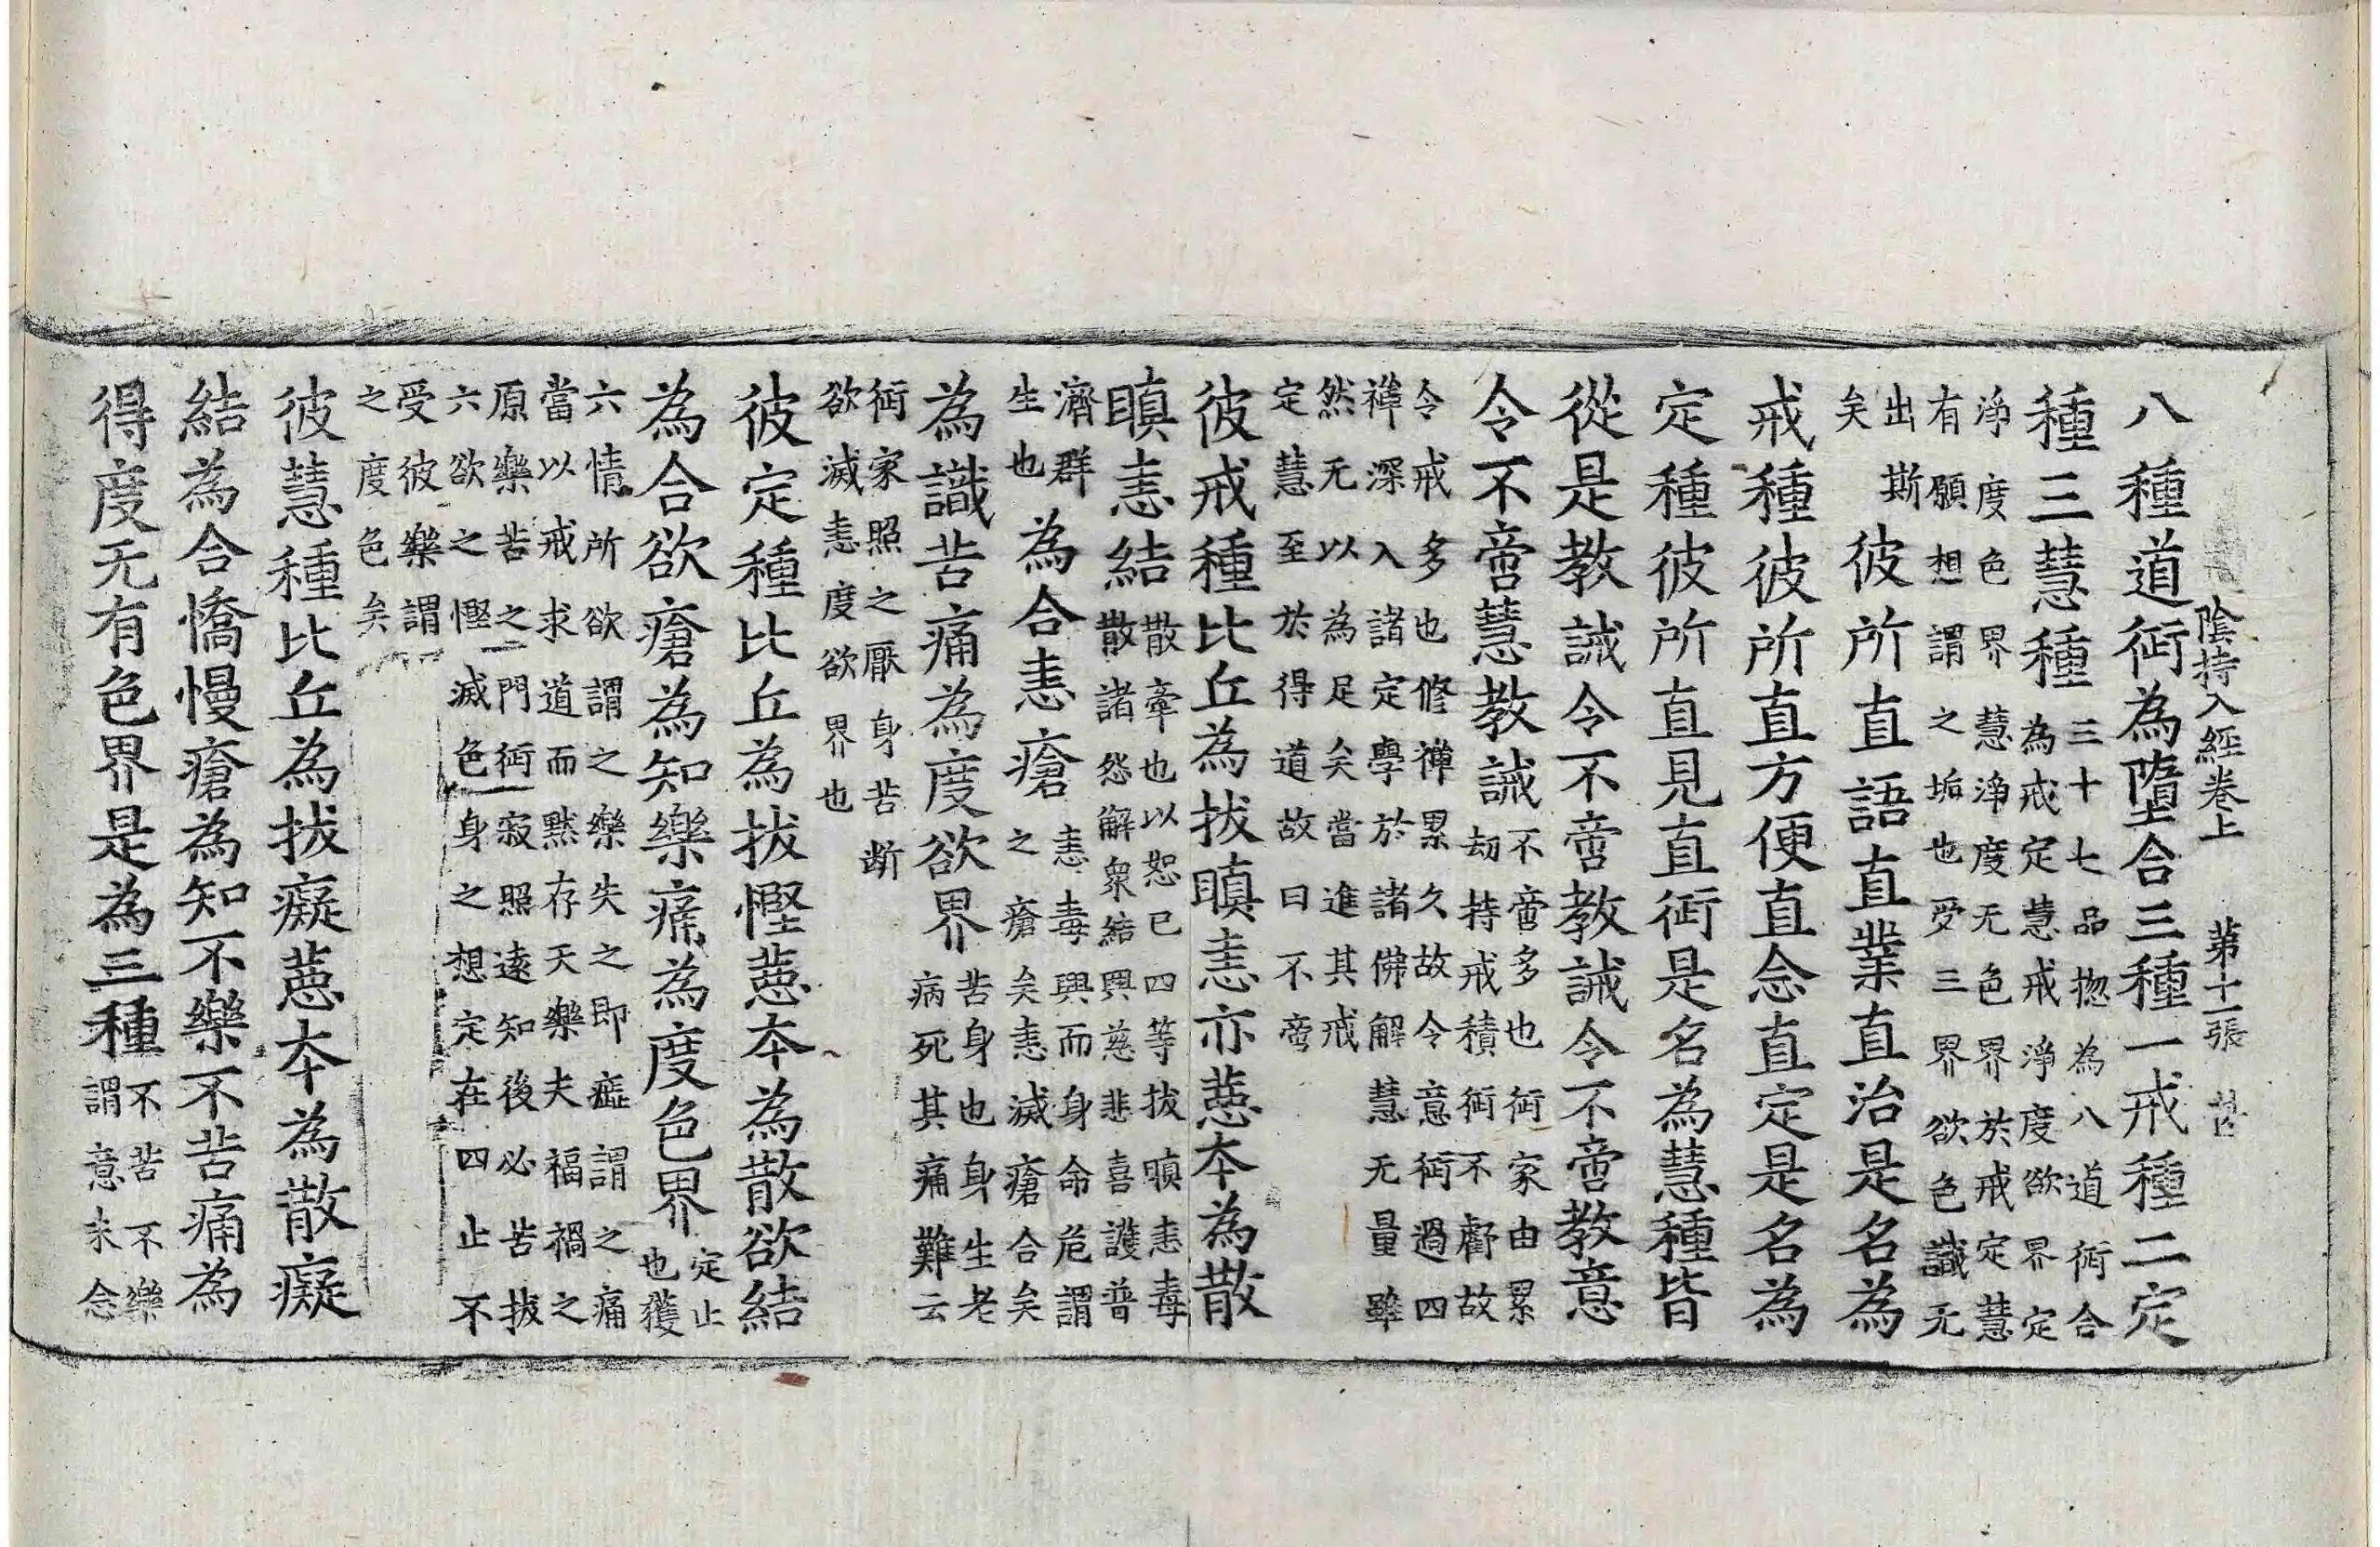 陰持入經卷上 第十一張
八種道行為墮合三種一戒種二定
種三慧種
三十七品揔為八道行合
為戒定慧戒淨度欲界定
淨度色界慧淨度无色界於戒定慧
有願想謂之垢也受三界欲色識无
出斯
矣
彼所直語直業直治是名為
戒種彼所直方便直念直定是名為
定種彼所直見直行是名為慧種皆
從是教誡令不啻教誡令不啻教意
令不啻慧教誡
不啻多也行家由累
劫持戒積行不虧故
令戒多也修禪累久故令意行過四
禪深入諸定學於諸佛解慧无量雖
然无以為足矣當進其戒
定慧至於得道故曰不啻
彼戒種比丘為拔瞋恚亦惡本為散
瞋恚結
散牽也以恕己四等拔瞋恚毒
散諸怨解衆結興慈悲喜護普
濟群
生也
為合恚瘡
恚毒興而身命危謂
之瘡矣恚滅瘡合矣
為識苦痛為度欲界
苦身也身生老
病死其痛難云
行家照之厭身苦断
欲滅恚度欲界也
彼定種比丘為拔慳惡本為散欲結
為合欲瘡為知樂痛為度色界
定止
也獲
六情所欲謂之樂失之即謂之痛
當以戒求道而黙存天樂夫福禍之
原樂苦之門行寂照遠知後必苦拔
六欲之慳滅色身之想定在四止不
受彼樂謂
之度色矣
彼慧種比丘為拔癡惡本為散癡
結為合憍慢瘡為知不樂不苦痛為
得度无有色界是為三種
不苦不樂
謂意未念